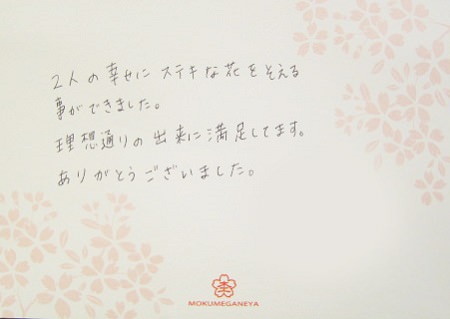 2人の幸せにステキな花をそえる
事ができました。
理想通りの出来に満足してます。
ありがとうございました。
MOKUMEGANEYA